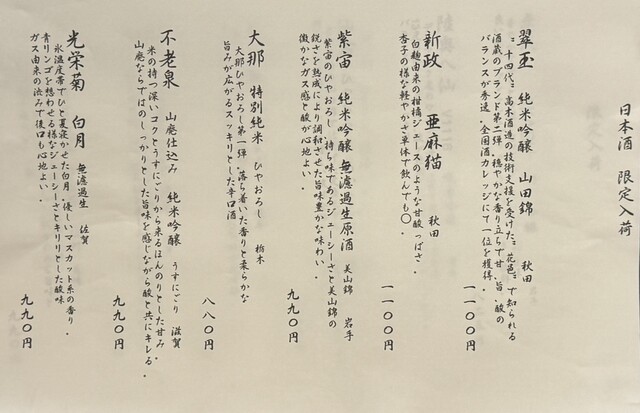 日本酒 限定入荷
翠玉 純米吟醸 山田錦 秋田
〝十四代〟高木酒造の技術支援を受けた〝花邑〟で知られる
酒蔵のブランド第二弾。穏やかな香り立ちで甘、旨、酸の
バランスが秀逸。全国酒カレッジにて一位を獲得。
一一〇〇円
新政 亜麻猫 秋田
白麹由来の柑橘ジュースのような甘酸っぱさ。
杏子の様な軽やかさ単体で飲んでも〇。
一一〇〇円
紫宙 純米吟醸 無濾過生原酒 美山錦 岩手
紫宙のひやおろし。持ち味であるジューシーさと美山錦の
鋭さを熟成により調和させた旨味豊かな味わい。
微かなガス感と酸が心地よい。
九九〇円
大那 特別純米 ひやおろし 栃木
大那ひやおろし第一弾 落ち着いた香りと柔らかな
旨みが広がるスッキリとした辛口酒
八八〇円
不老泉 山廃仕込み 純米吟醸 うすにごり 滋賀
米の持つ深いコクとうすにごりから来るほんのりとした甘み。
山廃ならではのしっかりとした旨味を感じながら酸と共にキレる。
九九〇円
光栄菊 白月 無濾過生 佐賀
氷温度帯でひと夏寝かせた白月。優しいマスカット系の香り。
青リンゴを想わせる様なジューシーさとキリリとした酸味
ガス由来の渋みで後口も心地よい。
九九〇円